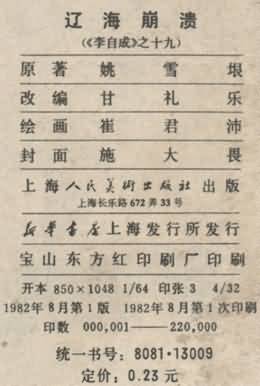 辽海崩溃
(《李自成》之十九)
原著 姚雪垠
改编 甘礼乐
绘画 崔君沛
封面 施大畏
上海人民美術出版社 出版
上海长乐路 672 弄 33 号
新华书店上海发行所发行
宝山东方红印刷厂印刷
开本 850×1048 1/64 印张 3 4/32
1982年8月第1版 1982年8月第1次印刷
印数 000,001——220,000
统一书号：8081·13009
定价：0.23 元